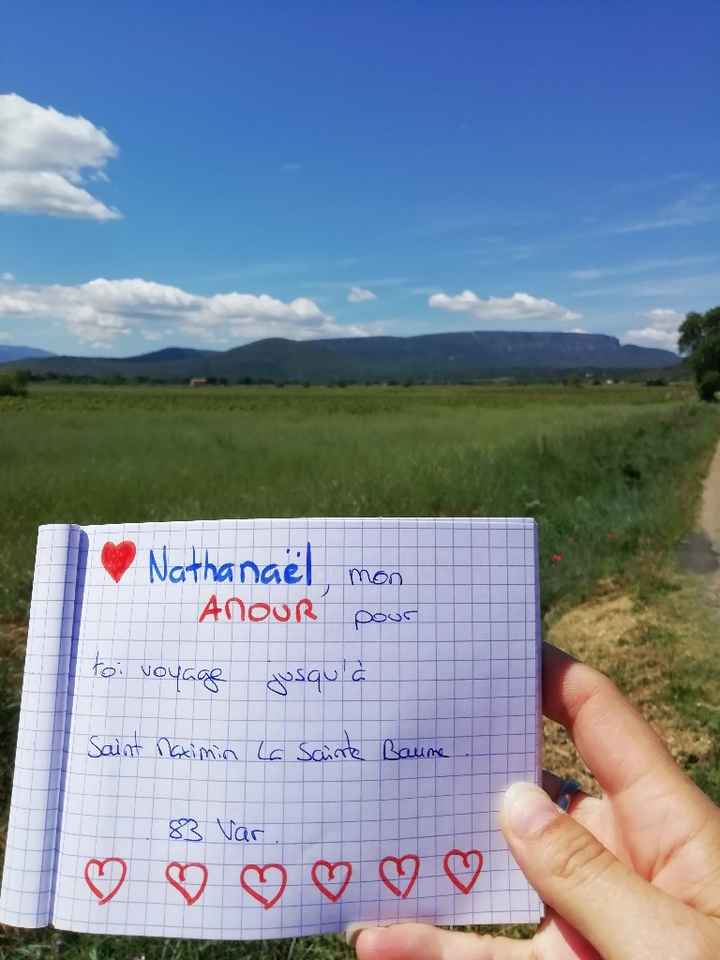 Nathanaël, mon
AMOUR pour
toi voyage jusqu'à
Saint Maximin La Sainte Baume.
83 Var.